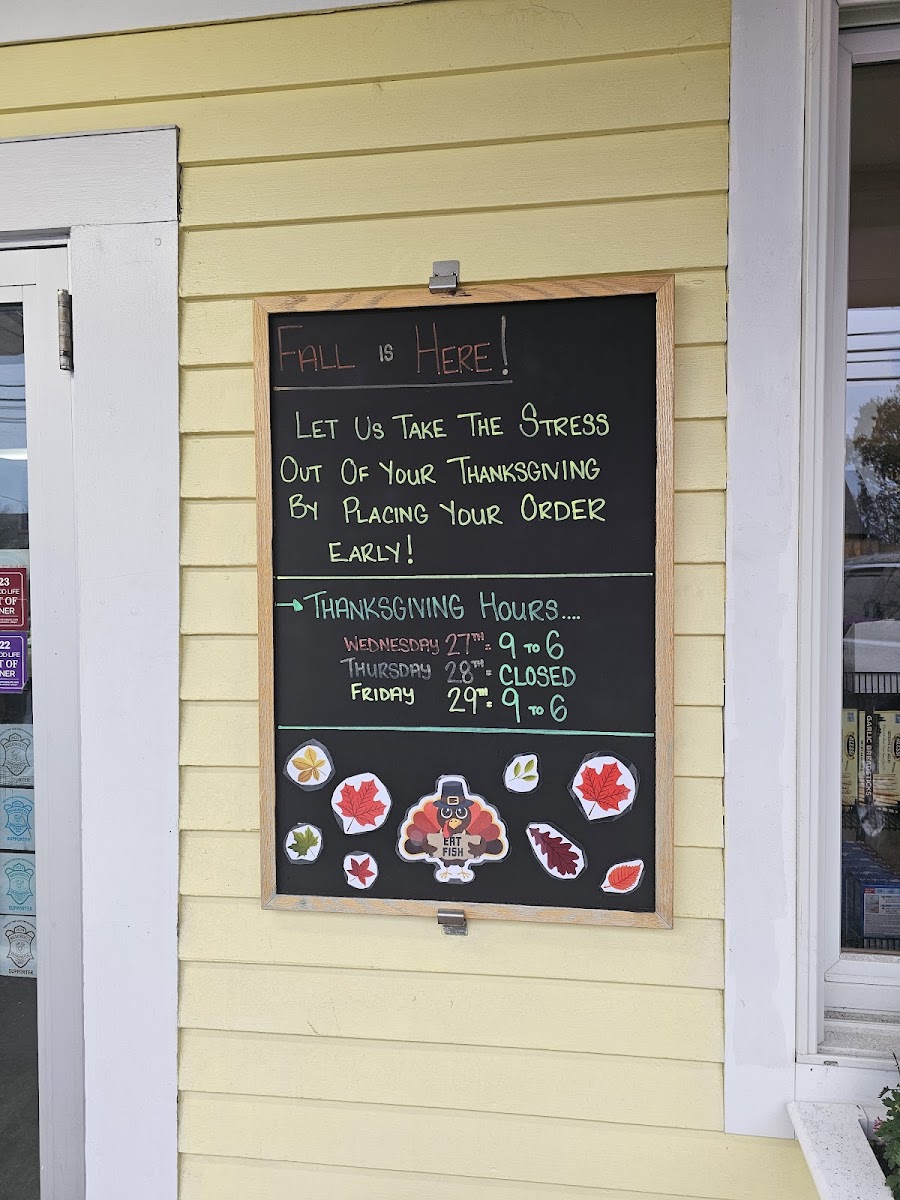 FALL IS HERE!
LET US TAKE THE STRESS
OUT OF YOUR THANKSGIVING
BY PLACING YOUR ORDER
EARLY!
THANKSGIVING HOURS....
WEDNESDAY 27TH: 9 TO 6
THURSDAY 28TH: CLOSED
FRIDAY 29TH: 9 TO 6
EAT
FISH
23
OD LIFE
T OF
NER
22
OD LIFE
T OF
NER
SUPPORTER
SUPPORTER
SUPPORTER
GARLIC BREADSTICKS